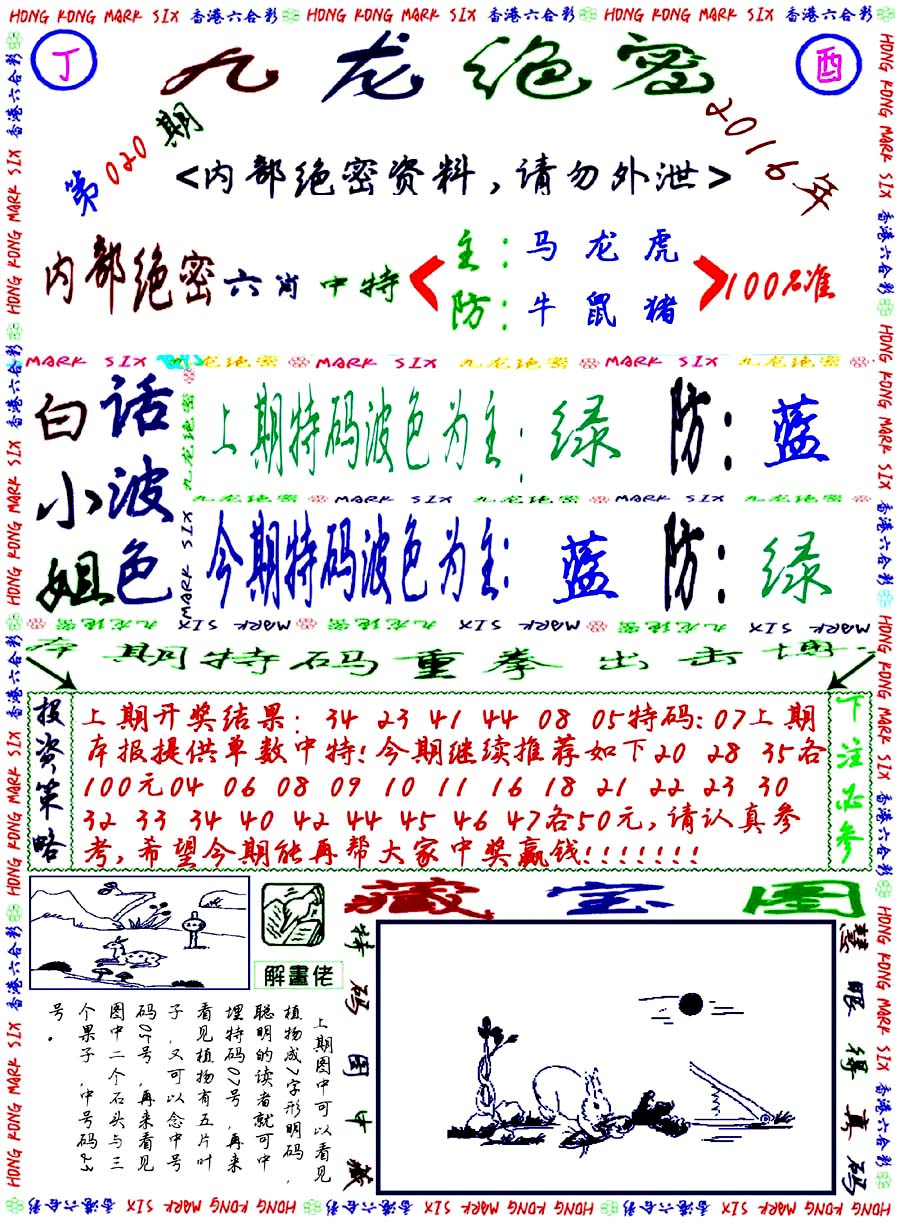 HONG KONG MARK SIX 香港六合彩 HONG KONG MARK SIX 香港六合彩 HONG KONG MARK SIX 香港六合彩
丁
九龙绝密
酉
第020期
2016年
<内部绝密资料,请勿外泄>
内部绝密六肖中特
主:马 龙 虎
防:牛 鼠 猪
100%准
MARK SIX 九龙绝密 MARK SIX 九龙绝密 MARK SIX 九龙绝密
白小姐
话波色
上期特码波色为主:绿 防:蓝
九龙绝密 MARK SIX 九龙绝密 MARK SIX 九龙绝密
今期特码波色为主:蓝 防:绿
九龙绝密 MARK SIX 九龙绝密 MARK SIX 九龙绝密 MARK SIX
本期特码重拳出击博
投资策略
上期开奖结果: 34 23 41 44 08 05特码:07上期
本报提供单数中特!今期继续推荐如下20 28 35各
100元04 06 08 09 10 11 16 18 21 22 23 30
32 33 34 40 42 44 45 46 47各50元,请认真参
考,希望今期能再帮大家中奖赢钱!!!!!!!
下注必参
解畫佬
藏宝图
特码图中藏
慧眼得真码
上期图中可以看见
植物成7字形明码,
聪明的读者就可中
埋特码07号,再来
看见植物有五片叶
子,又可以念中号
码05号,再来看见
图中二个石头与三
个果子,中号码23
号。
HONG KONG MARK SIX 香港六合彩 HONG KONG MARK SIX 香港六合彩 HONG KONG MARK SIX 香港六合彩